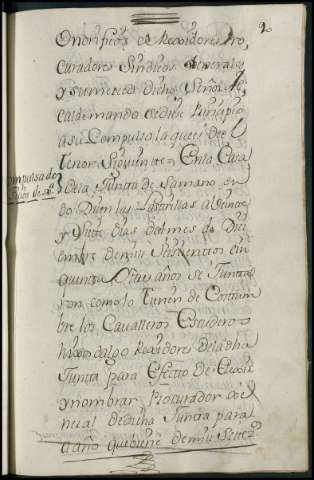 9
Onorificos de Rexidores Pro
curadores Sindicos Generales
y su merced dicho Señor Al
calde mando se de Principio
a su Compulsa la que es de el
tenor Siguiente = En la Casa
Compulsa de
de la Junta de Samano en
do Dicen las a Veinte
y Siete dias del mes de Dici
embre de mil Setecientos cin
quenta Ocho años se Junta
ron como lo tienen de Costum
bre los Cavalleros Escuderos
hixos dalgo Rexidores de la dha
Junta para Efectto De Elexir
y nombrar Procurador Ge
neral de dicha Junta para
el año que biene de mil Setez.s